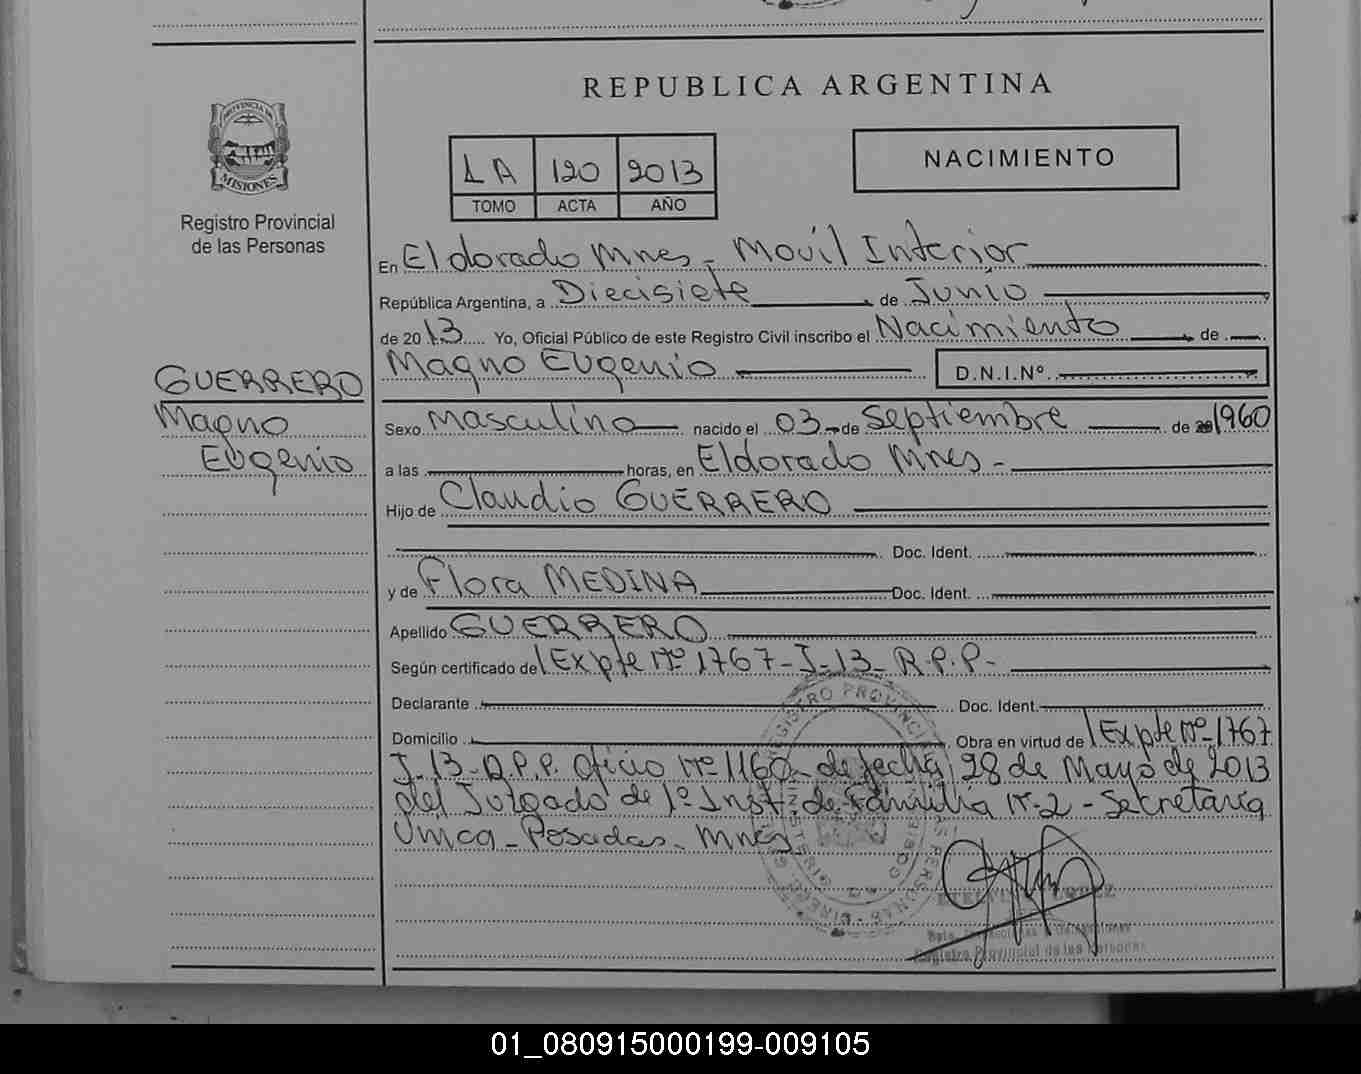 REPUBLICA ARGENTINA
PROVINCIA DE
MISIONES
Registro Provincial
de las Personas
1A 120 2013
TOMO ACTA AÑO
NACIMIENTO
En Eldorado Mnes - Movil Interior
República Argentina, a Diecisiete de Junio
de 2013 Yo, Oficial Público de este Registro Civil inscribo el Nacimiento de
Magno Eugenio D.N.I.Nº
GUERRERO
Magno
Eugenio
Sexo Masculino nacido el 03 de Septiembre de 1960
a las horas, en Eldorado Mnes -
Hijo de Claudio GUERRERO
Doc. Ident.
y de Flora MEDINA Doc. Ident.
Apellido GUERRERO
Según certificado del Expte Nº 1767-J-13- R.P.P-
Declarante Doc. Ident.
Domicilio Obra en virtud del Expte Nº 1767
J-13-R.P.P. Oficio Nº 1160 - de fecha 28 de Mayo de 2013
del Juzgado de 1º Inst. de Familia Nº 2 - Secretaria
Unica - Posadas - Mnes
REGISTRO PROVINCIAL DE LAS PERSONAS
LOPEZ
Registro Provincial de las Personas
01_080915000199-009105